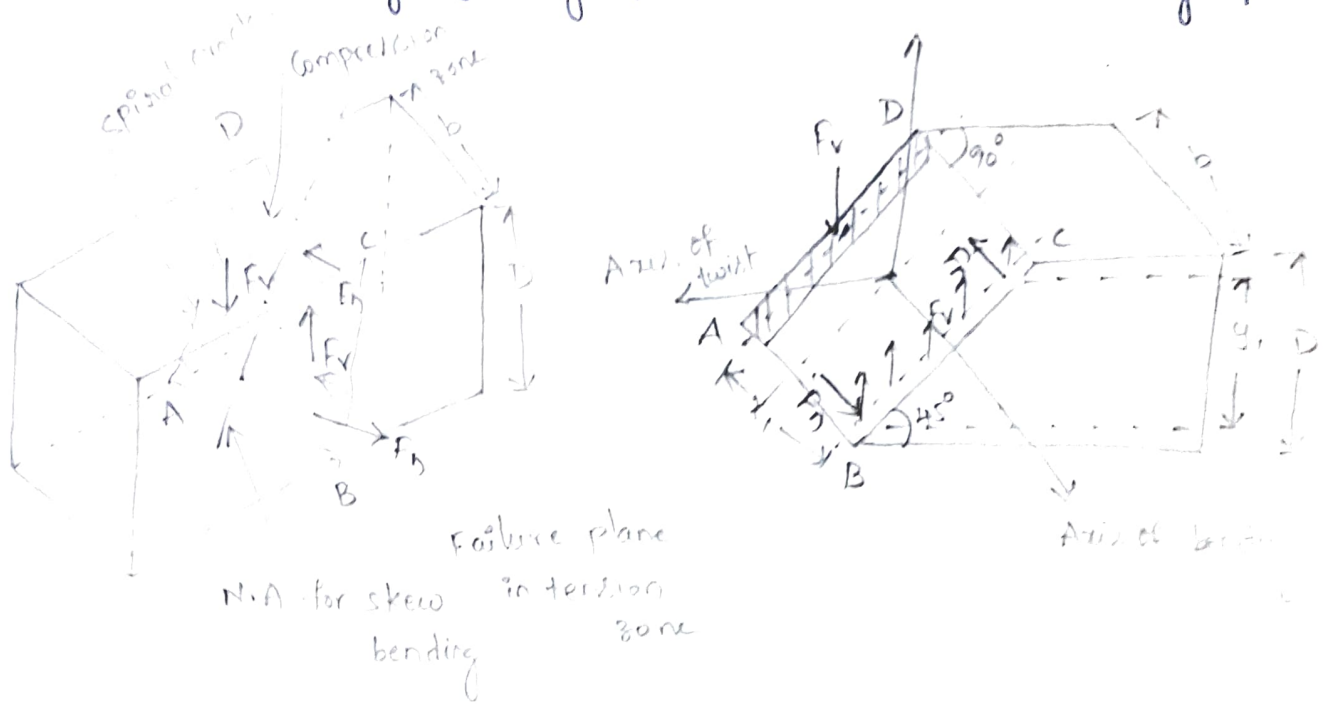 Spiral crack
Compression
zone
D
b
C
D
Fv
Fn
Fv
A
Fn
B
Failure plane
in torsion
zone
N.A for skew
bending
D
Fv
90°
b
Axis of
twist
C
A
Fv
y1
D
45°
B
Axis of